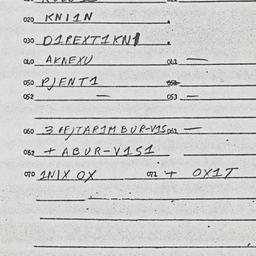 020 KNI1N
030 D1PEXT1KN1
040 AKNEXU 041 —
050 P)ENT1 051
052 — 053 —
060 3 ) TAP1M BUR-V1S 061 —
062 + ABUR-V1S1
070 1NIX OX 071 + OX1T